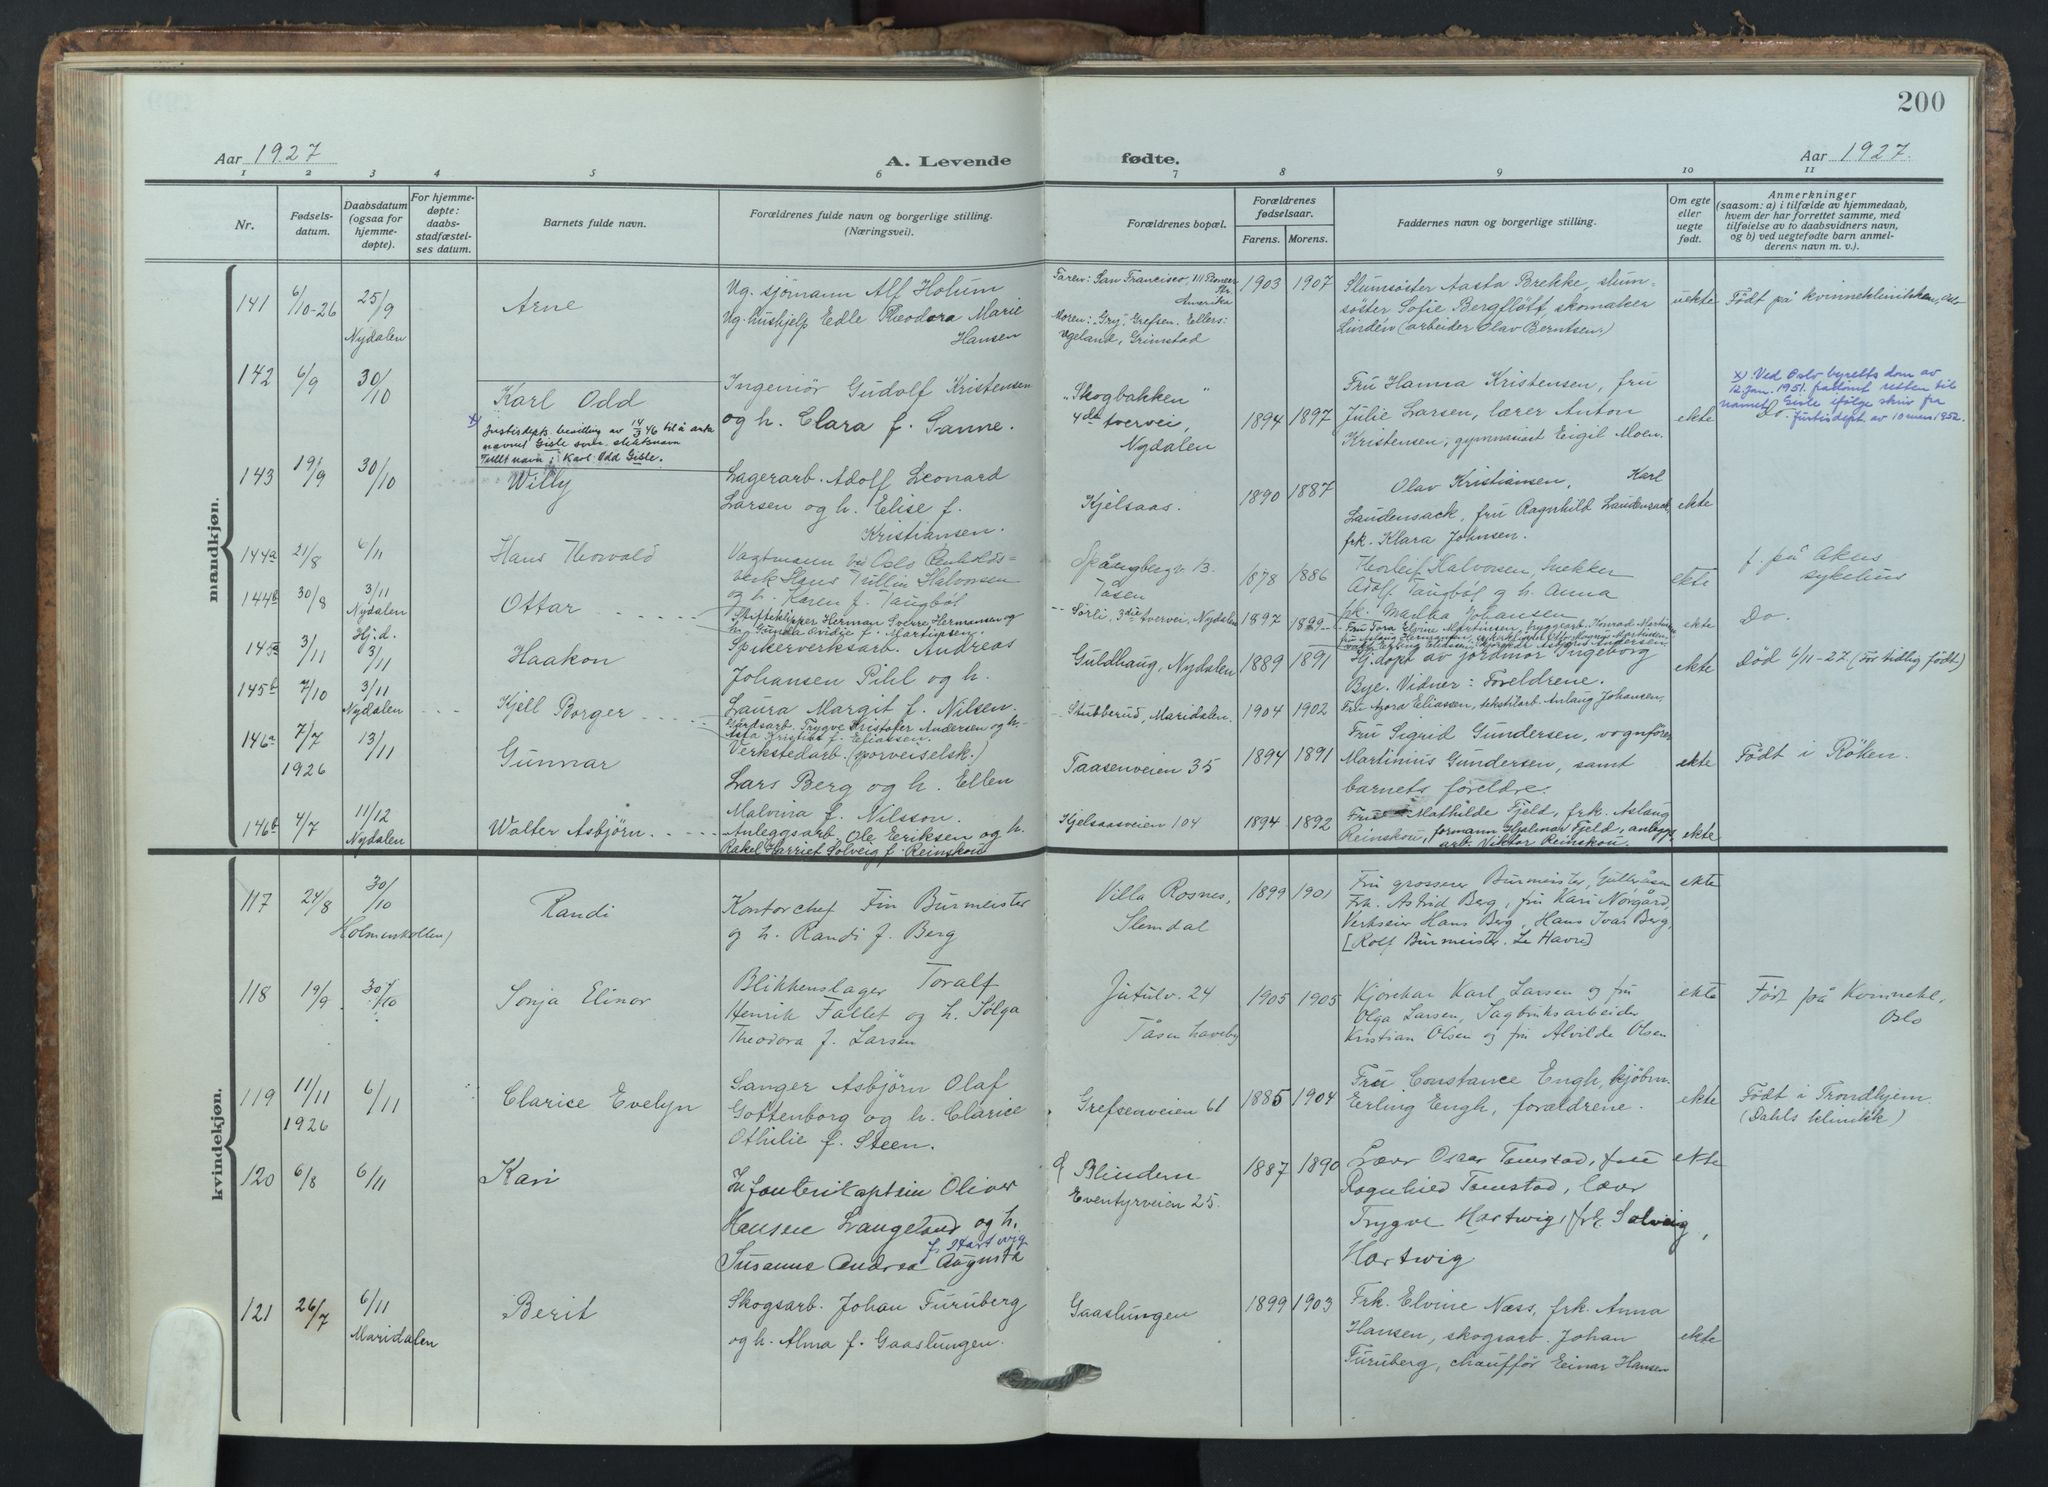 200
Aar 1927
A. Levende
fødte.
Aar 1927.
1 2 3 4 5 6 7 8 9 10 11
Nr.
Fødsels-
datum.
Daabsdatum
(ogsaa for
hjemme-
døpte).
For hjemme-
døpte:
daabs-
stadfæstel-
ses datum.
Barnets fulde navn.
Forældrenes fulde navn og borgerlige stilling.
(Næringsvei).
Forældrenes bopæl.
Forældrenes
fødselsaar.
Farens. Morens.
Faddernes navn og borgerlige stilling.
Om egte
eller
uegte
født.
Anmerkninger
(saasom: a) i tilfælde av hjemmedaab,
hvem der har forrettet samme, med
tilføielse av to daabsvidners navn,
og b) ved uegtefødte barn anmel-
derens navn m. v.).
mandkjøn.
141
6/10-26
25/9
Nydalen
Arne
Ug. sjømann Alf Holum
Ug. hushjelp Edle Theodora Marie
Hansen
Faren: San Francisco, 111 Pioneer
Str.
Amerika
Moren: "Gry", Grefsen. Ellers:
Ugeland, Grimstad
1903 1907
Slumsøster Aasta Brekke, slum-
søster Sofie Bergfløtt, skomaker
Lindén (arbeider Olav Berntsen.)
uekte
Født på kvinneklinikken, Oslo
142
6/9
30/10
Karl Odd
x) Justisdepts. bevilling av 14/3 46 til å anta
navnet Gisle som slektsnavn
Fullt navn: Karl Odd Gisle.
Ingeniør Gudolf Kristensen
og h. Clara f. Sanne.
"Skogbakken"
4de tverrvei,
Nydalen
1894 1897
Fru Hanna Kristensen, fru
Julie Larsen, lærer Anton
Kristensen, gymnasiast Eigil Moen.
ekte
Do.
x) Ved Oslo byretts dom av
12 jan. 1951. fradömt retten til
navnet Gisle ifölge skriv fra
Justisdept. av 10 mars 1952.
143
19/9
30/10
Willy
Lagerarb. Adolf Leonard
Larsen og h. Elise f.
Kristiansen.
Kjelsaas.
1890 1887
Olav Kristiansen, Karl
Laudensack, fru Ragnhild Laudensack,
frk. Klara Johnsen.
ekte
144a
21/8
6/11
Hans Thorvald
Vagtmann ved Oslo Renholds-
verk Hans Tullin Halvorsen
og h. Karen f. Taugbøl
Spångbergv. 13.
Tåsen
1878 1886
Thorleif Halvorsen, snekker
Adolf Taugbøl og h. Anna
frk. Martha Johansen
ekte
f. på Akers
sykehus
144b
30/8
3/11
Nydalen
Ottar
Stifteklipper Herman Sverre Hermansen og
h. Gunda Ovidie f. Martinsen.
Sørli, 3die tverrvei, Nydalen
1897 1899
Fru Tora Elvine Martinsen, bryggeriarb. Konrad Martinsen
ekte
Do.
145a
3/11
Hj.d.
3/11
Haakon
Spikerverksarb. Andreas
Johansen Pihl og h.
Laura Margit f. Nilsen.
Guldhaug, Nydalen
1889 1891
Hj.døpt av jordmor Ingeborg
Bye. Vidner: Foreldrene.
ekte
Död 6/11-27 (For tidlig født)
145b
7/10
3/11
Nydalen
Kjell Borger
Gårdsarb. Trygve Kristofer Andersen og h.
Asta Kristine f. Eliassen.
Stubberud, Maridalen.
1904 1902
Fru Agora Eliassen, tekstilarb. Anlaug Johansen,
146a
7/7
1926
13/11
Gunnar
Verkstedarb. (sporveiselsk.)
Lars Berg og h. Ellen
Malvina f. Nilsson.
Taasenveien 35
1894 1891
Fru Sigrid Gundersen, vognfører
Martinius Gundersen, samt
barnets foreldre.
ekte
Født i Röken.
146b
4/7
11/12
Nydalen
Walter Asbjörn
Anleggsarb. Ole Eriksen og h.
Rakel Harriet Solveig f. Reinskou
Kjelsaasveien 104
1894 1892
Fru Mathilde Fjeld, frk. Aslaug
Reinskou, formann Hjalmar Fjeld, anleggs-
arb. Viktor Reinskou.
ekte
kvindekjøn.
117
24/8
30/10
Holmenkollen
Randi
Kontorchef Fin Burmeister
og h. Randi f. Berg
Villa Rosnes,
Slemdal
1899 1901
Fru grosserer Burmeister, Gulleråsen
Frk. Astrid Berg, fru Kari Nörgård,
Verkseier Hans Berg, Hans Ivar Berg,
[Rolf Burmeister. Le Havre]
ekte
118
19/9
30/10
Sonja Elinor
Blikkenslager Toralf
Henrik Fallet og h. Solga
Theodora f. Larsen
Jutulv. 24
Tåsen haveby
1905 1905
Kjörekar Karl Larsen og fru
Olga Larsen, Sagbruksarbeider
Kristian Olsen og fru Alvilde Olsen
ekte
Født på Kvinnekl,
Oslo
119
11/11
1926
6/11
Clarice Evelyn
Sanger Asbjörn Olaf
Gottenborg og h. Clarice
Othilie f. Steen.
Grefsenveien 61
1885 1904
Fru Constance Engh, kjøbm.
Erling Engh, forældrene.
ekte
Født i Trondhjem.
(Dahls klinikk)
120
6/8
6/11
Kari
Infanterikaptein Oliver
Hansen Langeland og h.
Susanne Andrea Augusta
f. Hartvig
Blindern
Eventyrveien 25.
1887 1890
Lærer Oscar Tomstad, fru
Ragnhild Tomstad, lærer
Trygve Hartwig, frk. Solveig
Hartwig
ekte
121
26/7
6/11
Maridalen
Berit
Skogsarb. Johan Furuberg
og h. Alma f. Gaaslungen.
Gaaslungen
1899 1903
Frk. Elvine Næss, frk. Anna
Hansen, skogsarb. Johan
Furuberg, chauffør Einar Hansen
ekte